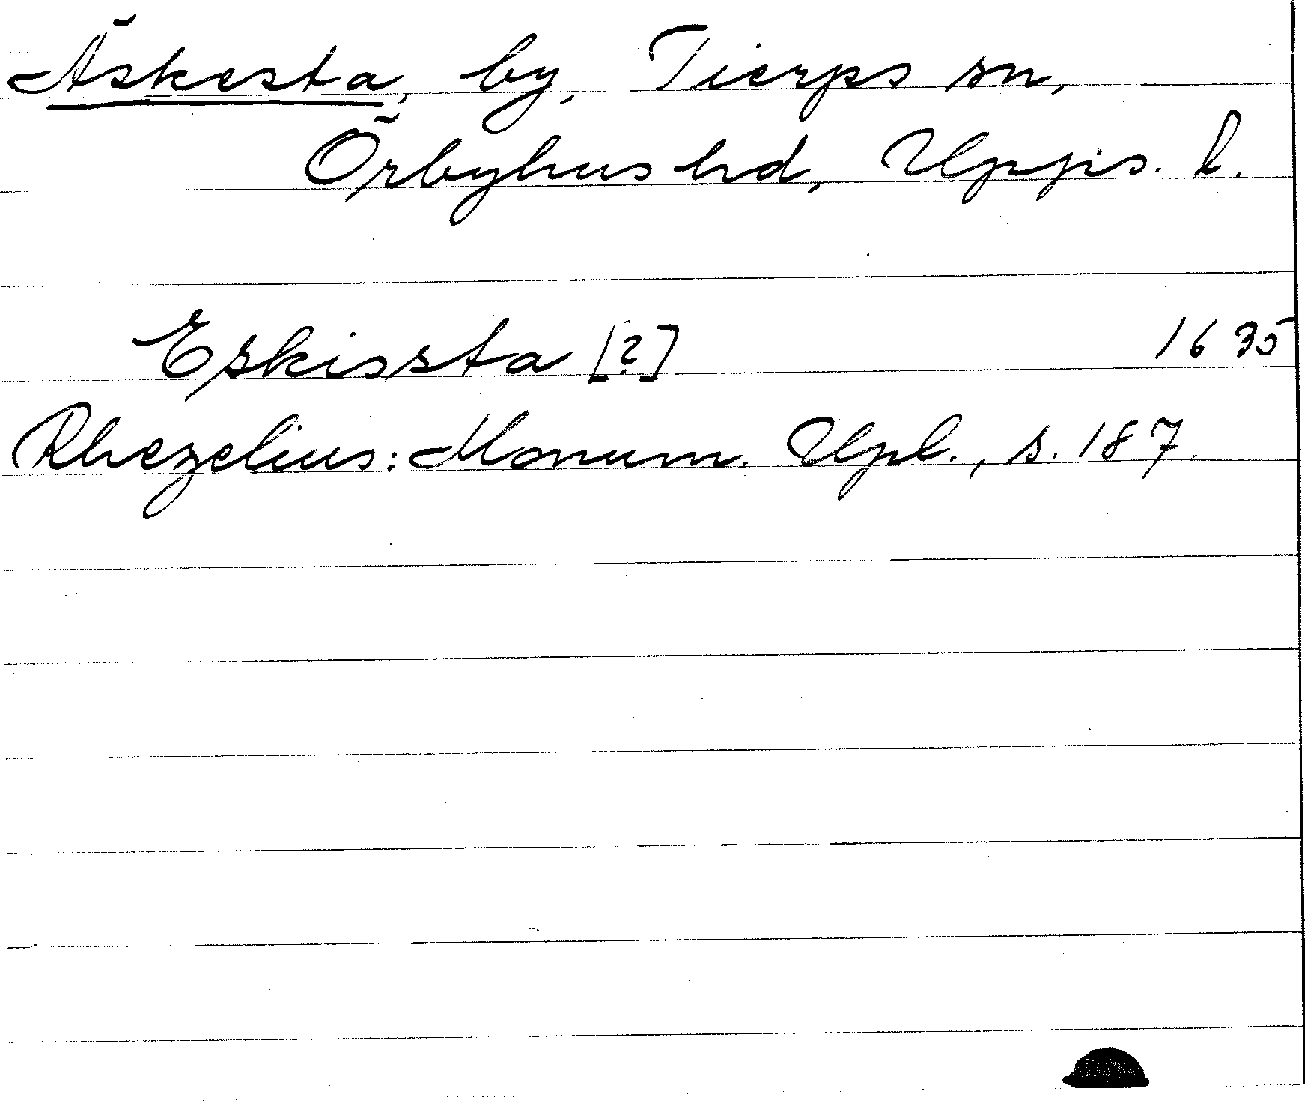 Äskesta, by, Tierps sn,
Örbyhus hd, Upps. l.
Eskissta [?] 1635
Rhezelius: Monum. Upl., s. 187